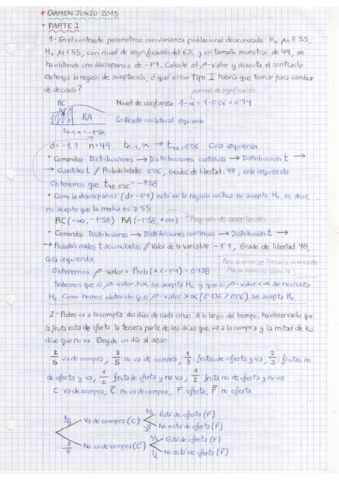 * EXAMEN JUNIO 2015
* PARTE I
1- En el contraste paramétrico con varianza poblacional desconocida H₀ μ ≥ 55,
H₁ μ < 55, con nivel de significación del 6% y un tamaño muestral de 49, se
ha obtenido una discrepancia de -1'1. Calcule el p-valor y discuta el contraste
obtenga la región de aceptación, ¿qué error tipo I habría que tomar para cambiar
de decisión?
RC
RA
Nivel de confianza 1-α = 1-0'06 = 0'94
Gráficante unilateral izquierdo
d = -1,1 n = 49 Cola izquierda
* Comandos Distribuciones → Distribuciones continuas → Distribución t →
→ Cuantiles t // Probabilidades 0'06, Grados de libertad, 48, cola izquierda
Obtenemos que = -1'58
* Como la discrepancia (d = -1'1) está en la región no acepto H₁, es decir,
no acepto que la media es ≥ 55
RC (-∞, -1'58) RA (-1'58, +∞) Región de aceptación
* Comandos Distribuciones → Distribuciones continuas → Distribución t →
→ Probabilidades t acumuladas // Valor de la variable -1'1, Grados de libertad 48,
Cola izquierda
Obtenemos p-valor = Prob (X < -1'1) = 0'138
Sabemos que si p-valor > α se acepta H₀ y que si p-valor < α se rechaza
H₀ Como hemos obtenido que p-valor > α (0'136 > 0'06) se acepta H₀
2- Pedro va a la compra dos días de cada cinco. A lo largo del tiempo, ha observado que
la fruta está de oferta la tercera parte de los días que va a la compra y la mitad de los
días que no va. Elegido un día al azar:
2/5 va de compra, 3/5 no va de compra, 1/3 frutas de oferta y va, 2/3 frutas no
de oferta y va, 1/2 fruta de oferta y no va, 1/2 fruta no de oferta y no va
C va de compra, C̄ no va de compra, F oferta, F̄ no oferta
2/5 Va de compra (C) 1/3 Está de oferta (F)
2/3 No está de oferta (F̄)
3/5 No va de compra (C̄) 1/2 Está de oferta (F)
1/2 No está de oferta (F̄)